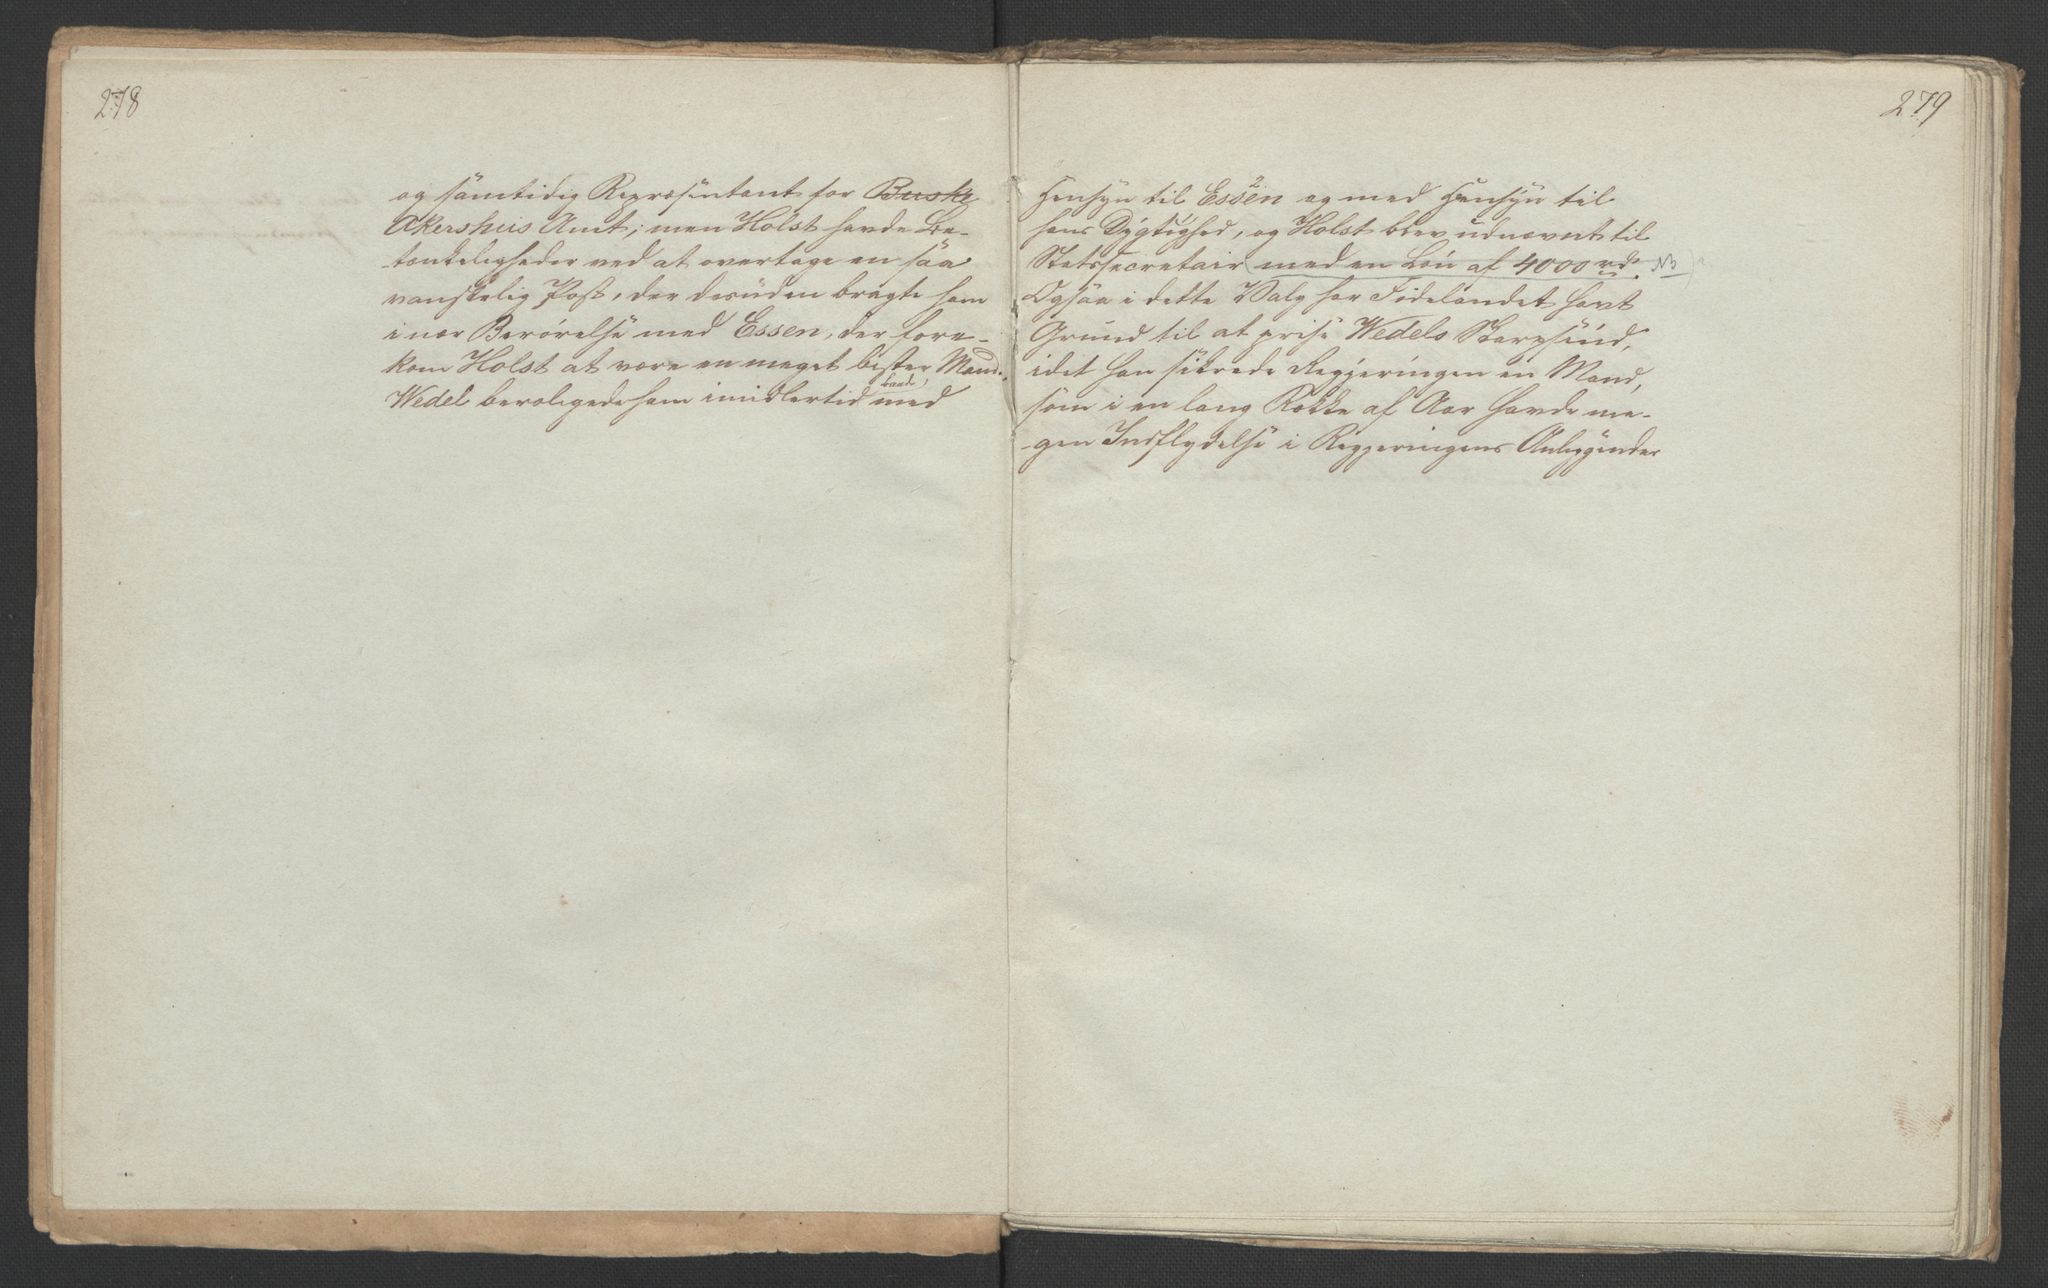 278
og samtidig Repræsentant for Busk
Akershus Amt; men Holst havde Be-
tænkeligheder ved at overtage en saa
vanskelig Post, der desuden bragte ham
i nær Berørelse med Essen, der fore-
kom Holst at være en meget bister Mand.
Wedel beroligede ham imidlertid baade, med
279
Hensyn til Essen og med Hensyn til
hans Dygtighed, og Holst blev udnævnt til
Statssecretair med en Løn af 4000 rd. NB
Ogsaa i dette Valg har Fødelandet havt
Grund til at prise Wedels Skarpsind,
idet han sikrede Regjeringen en Mand,
som i en lang Række af Aar havde me-
gen Indflydelse i Regjeringens Anliggender